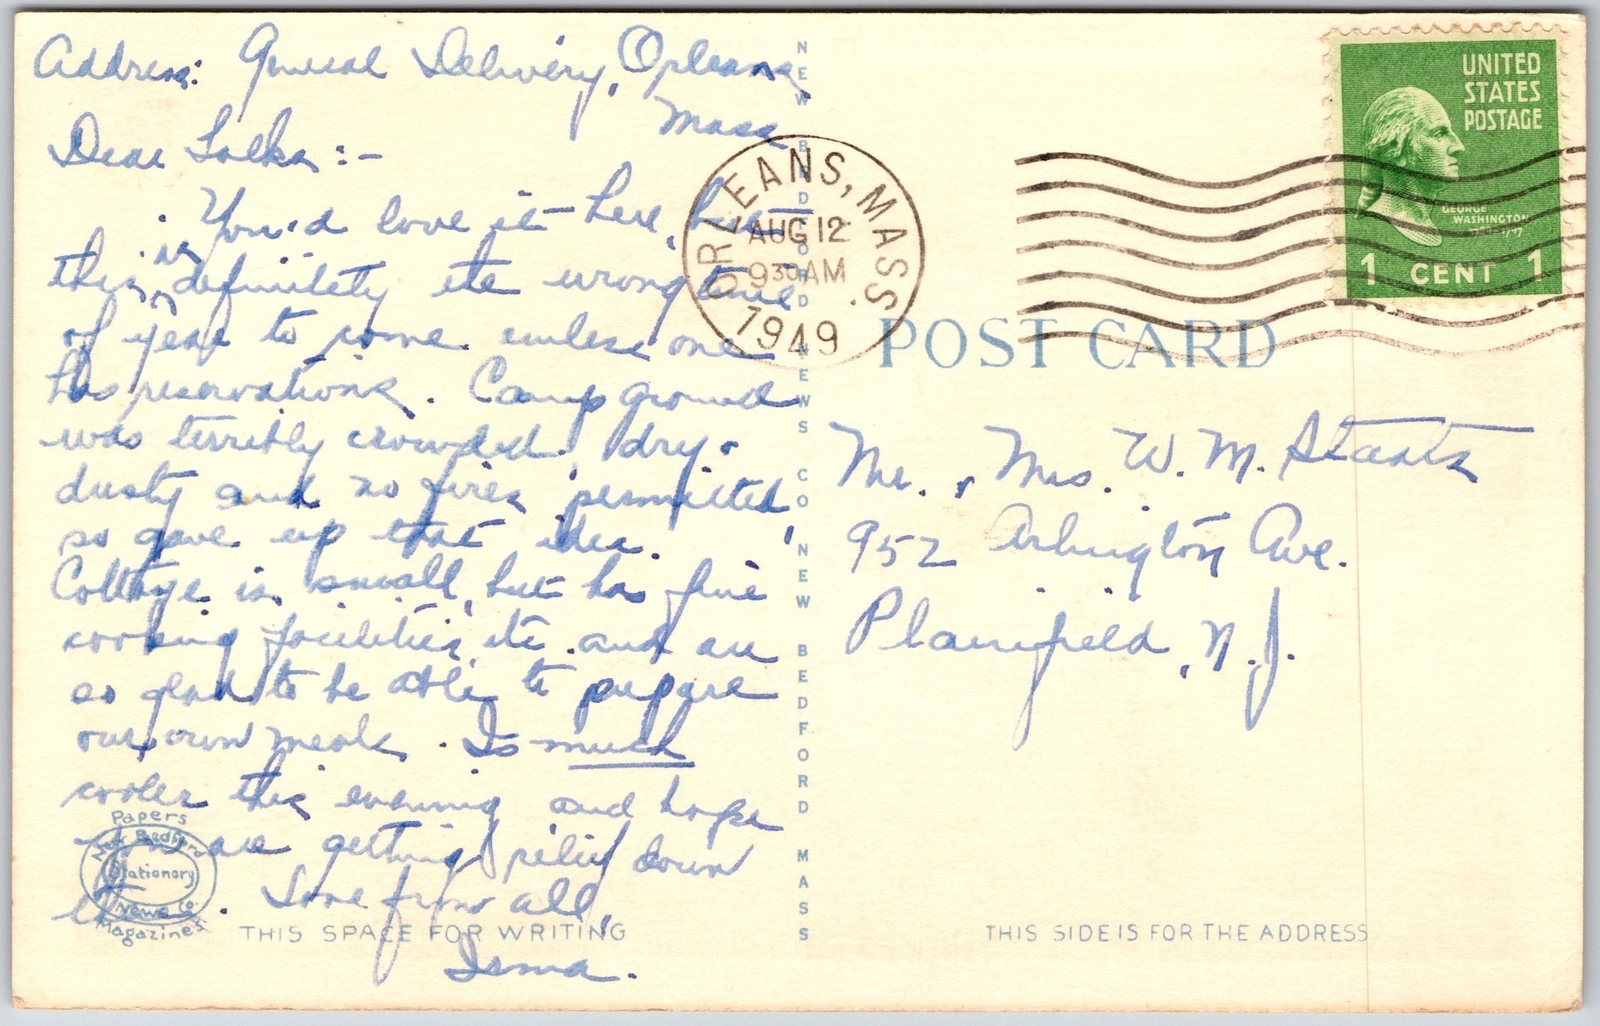 Address: General Delivery, Orleans,
Mass
Dear Folks :-
You'd love it here, but
this is definitely the wrong time
of year to come unless one
has reservations. Camp ground
was terribly crowded, dry &
dusty and no fires permitted,
so gave up that idea.
Cottage is small, but has fine
cooking facilities, etc. and are
so glad to be able to prepare
our own meals. Is much
cooler this evening and hope
you are getting relief down
there. Love from all,
Isma.
NEW BEDFORD NEWS CO NEW BEDFORD MASS
Papers
New Bedford
Stationery
News Co
Magazines
THIS SPACE FOR WRITING
ORLEANS, MASS.
AUG 12
930 AM
1949
UNITED
STATES
POSTAGE
GEORGE
WASHINGTON
1789-1797
1 CENT 1
POST CARD
Mr. & Mrs. W. M. Staats
952 Arlington Ave.
Plainfield, N.J.
THIS SIDE IS FOR THE ADDRESS